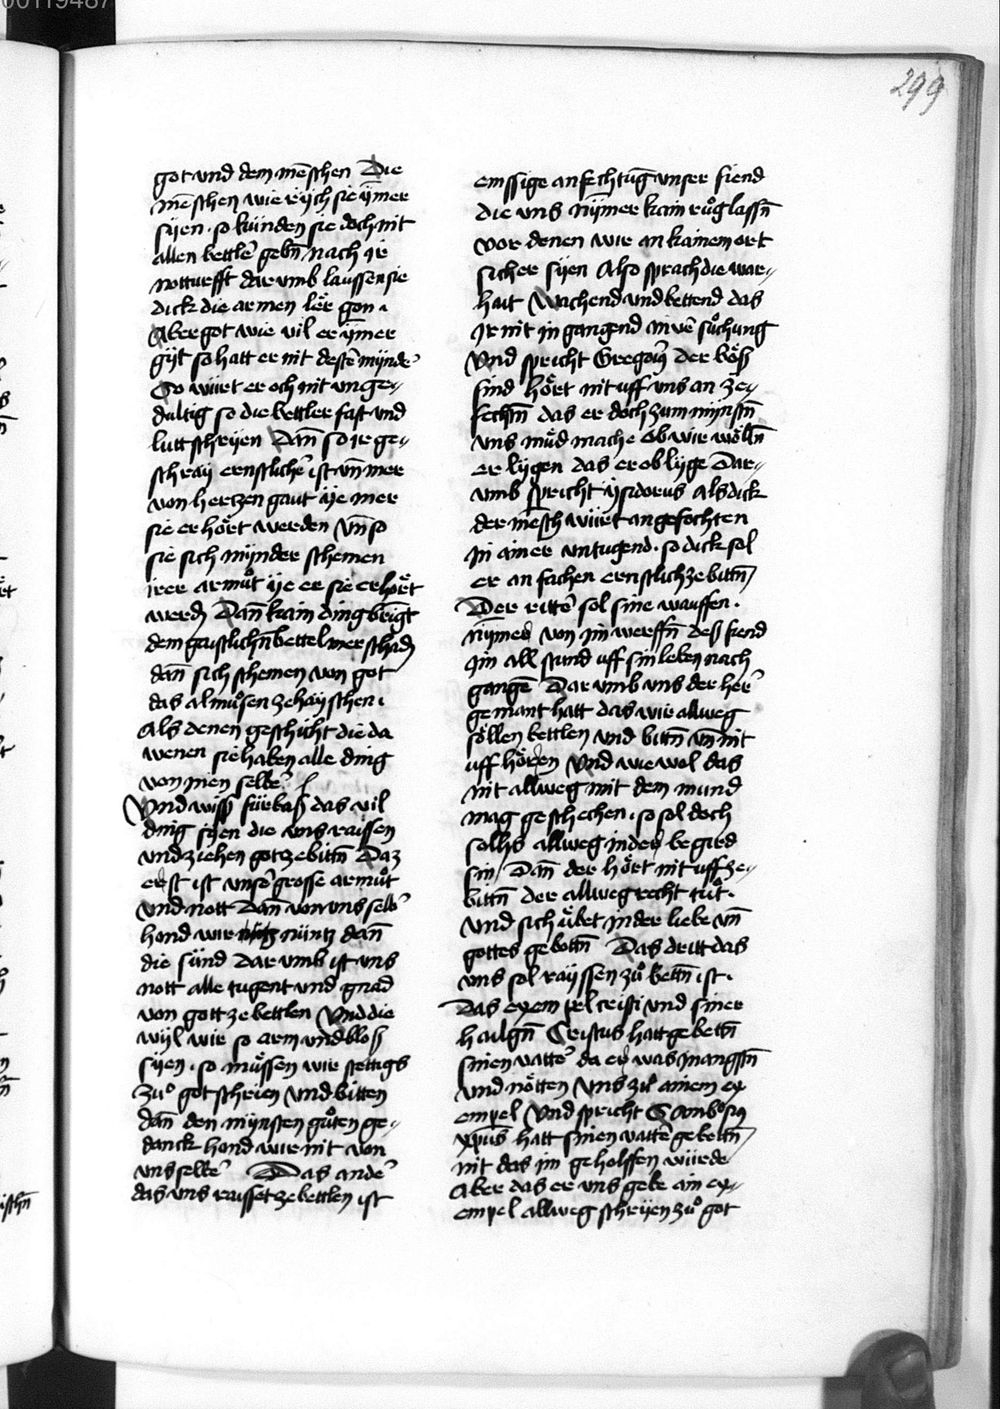 00119487
299
got vnd dem mēschen Die
mēschen wie rÿch sie ÿmer
sÿen · so kúnden sie doch nit
allen bettlē gebn̄ nach ir
notturfft dar vmb laussen sie
dick die armen lër gon ·
Aber got wie vil er ÿmer
gÿt so hatt er nit destē mÿndē
So wúrt er och nit vnge-
dultig so die bettler fast vnd
lutt schrÿen Dan̄ so ir ge-
schraÿ ernstlichē ist vn̄ mer
von hertzen gaut ÿe mer
sie erhoͤrt werden Vn̄ so
sie sich mÿnder schemen
irer armuͦt ÿe er sie erhoͤrt
werdn̄ Dan̄ kain ding bringt
dem gaistlichn̄ bettel mer schadn̄
dan̄ sich schemen von got
das almuͦsen ze haÿschen ·
Als denen geschicht die da
wenen sie haben alle ding
von inen selbē
Vnd wiss fúrbaß das vil
ding sÿen die vns raissen
vnd ziehen got ze bittn̄ Daz
erst ist vnser grosse armuͦt
vnd nott Dan̄ von vns selbē
hond wir núntz dan̄
die súnd Dar vmb ist vns
nott alle tugent vnd gnad
von gott ze bettlen Vnd die
wÿl wir so arm vnd bloß
sÿen · so muͤssen wir stettigs
zuͦ got schrien vnd bitten
dan̄ den mÿnsten guͦten ge-
danck hond wir nit von
vns selbē Das andē
das vns raisset ze bettlen ist
emssige anfechtūg vnser fiend
die vns nÿmer kain ruͦg lassn̄
vor denen wir an kainem ort
sicher sÿen Also sprach die war-
hait Wachend vnd bettend das
Ir nit in gangend in vē suͦchung
Vnd spricht Gregoriꝰ der boͤß
find hoͤrt nit uff vns an ze-
fechtn̄ das er doch zum minstn̄
vns muͤd mache Ob wir woͤlln̄
er lÿgen das er ob lÿge Dar-
vmb spricht ÿsidorus Als dick
der mēsch wúrt angefochten
In ainer vntugend · so dick sol
er an fachen ernstlich ze bittn̄
Der rittē sol sine wauffen ·
nÿmer von im werffn̄ deß fiend
im all stund uff sin leben nach
gangē Dar vmb vns der her̄
gemant hatt das wir allweg
soͤllen bettlen vnd bittn̄ vn̄ nit
uff hoͤren Vnd wie wol das
nit allweg mit dem mund
mag geschechen · so sol doch
solhs allweg in der begird
sin Dan̄ der hoͤrt nit uff ze-
bittn̄ der allweg recht tuͦt ·
vnd sich uͤbet in der liebe vn̄
gottes gebottn̄ Das dritt das
vns sol raÿssen zuͦ bettn̄ ist ·
Das exempel cristi vnd siner
hailgn̄ Cristus hatt gebettn̄
sinen vattē da er was in angstn̄
vnd noͤtten Vns zuͦ ainem ex
empel Vnd spricht S Ambrosiꝰ
xpūs hatt sinen vattē gebettn̄
nit das im geholffen wúrde
Aber das er vns gebe ain ex-
empel allweg schrÿen zuͦ got